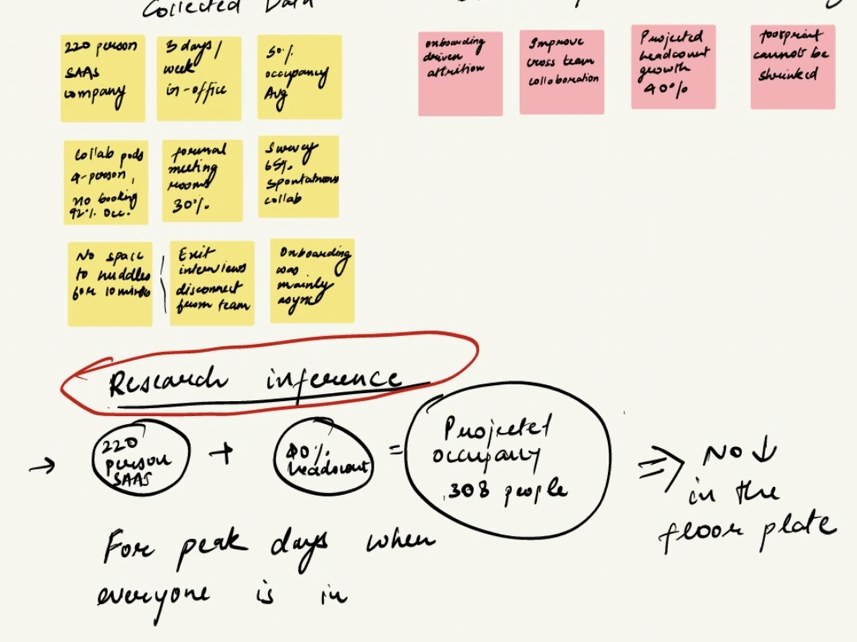 Collected Data
220 person
SAAS
company
3 days/
week
in-office
50%
occupancy
Avg
onboarding
driven
attrition
Improve
cross team
collaboration
Projected
headcount
growth
40%
footprint
cannot be
shrinked
Collab pods
4-person,
no booking
92% Occ.
formal
meeting
rooms
30%
Survey
65%
spontaneous
collab
No space
to huddles
for 10 mins
Exit
interviews
disconnect
from team
Onboarding
was
mainly
async
Research inference
→ 220
person
SAAS
+
40%
headcount
=
Projected
occupany
308 people
⇒ No ↓
in the
floor plate
For peak days when
everyone is in